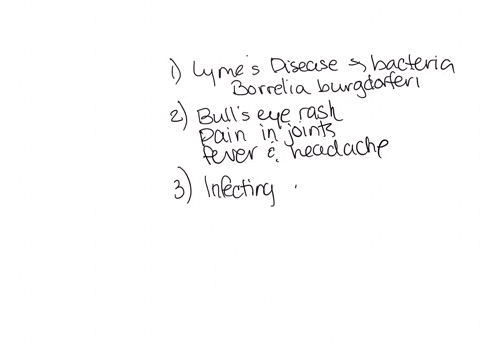 1) Lyme's Disease → bacteria
Borrelia burgdorferi
2) Bull's eye rash
Pain in joints
fever & headache
3) Infecting